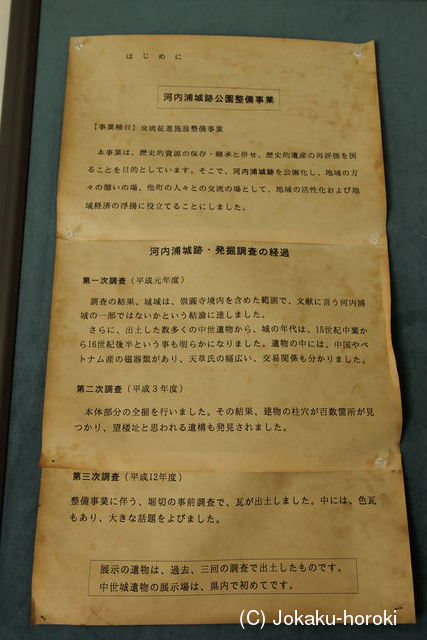 はじめに
河内浦城跡公園整備事業
【事業種目】交流促進施設整備事業
本事業は、歴史的資源の保存・継承と併せ、歴史的遺産の再評価を図
ることを目的としています。そこで、河内浦城跡を公園化し、地域の方
々の憩いの場、他町の人々との交流の場として、地域の活性化および地
域経済の浮揚に役立てることにしました。
河内浦城跡・発掘調査の経過
第一次調査（平成元年度）
調査の結果、城域は、崇圓寺境内を含めた範囲で、文献に言う河内浦
城の一部ではないかという結論に達しました。
さらに、出土した数多くの中世遺物から、城の年代は、15世紀中葉か
ら16世紀後半という事も明らかになりました。遺物の中には、中国やベ
トナム産の磁器類があり、天草氏の幅広い、交易関係も分かりました。
第二次調査（平成３年度）
本体部分の全掘を行いました。その結果、建物の柱穴が百数箇所が見
つかり、望楼址と思われる遺構も発見されました。
第三次調査（平成12年度）
整備事業に伴う、堀切の事前調査で、瓦が出土しました。中には、色瓦
もあり、大きな話題をよびました。
展示の遺物は、過去、三回の調査で出土したものです。
中世城遺物の展示場は、県内で初めてです。
(C) Jokaku-horoki